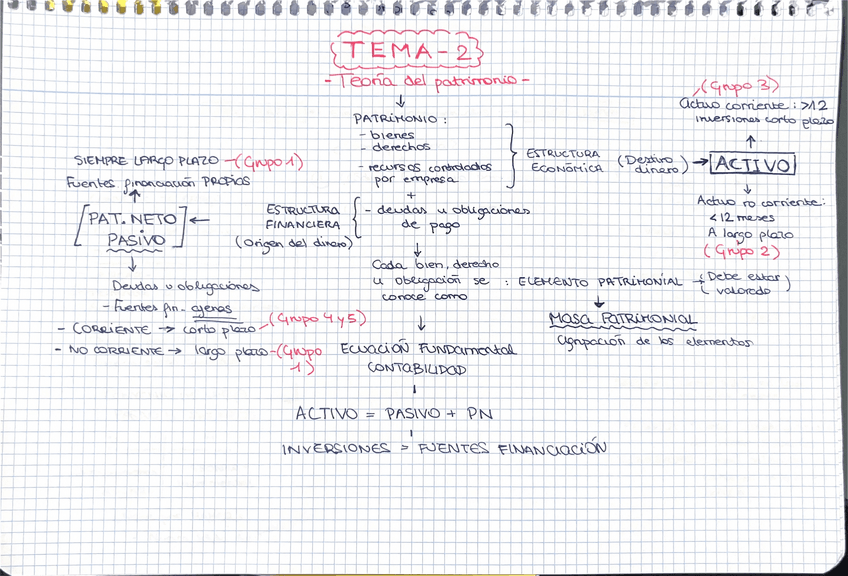 TEMA-2
- Teoría del patrimonio -
PATRIMONIO :
- bienes
- derechos
- recursos controlados
por empresa
+
- deudas u obligaciones
de pago
ESTRUCTURA
ECONÓMICA
(Destino
dinero)
→ ACTIVO
(Grupo 3)
Activo corriente : >12
inversiones corto plazo
Activo no corriente:
< 12 meses
A largo plazo
(Grupo 2)
ESTRUCTURA
FINANCIERA
(Origen del dinero)
SIEMPRE LARGO PLAZO -(Grupo 1)
Fuentes financiación PROPIOS
[PAT. NETO
PASIVO]
Deudas u obligaciones
- Fuentes fin. ajenas
- CORRIENTE → corto plazo -(Grupo 4 y 5)
- NO CORRIENTE → largo plazo -(Grupo
1)
Cada bien, derecho
u obligación se
conoce como
: ELEMENTO PATRIMONIAL → (Debe estar
valorado)
MASA PATRIMONIAL
Agrupación de los elementos
ECUACIÓN FUNDAMENTAL
CONTABILIDAD
ACTIVO = PASIVO + PN
INVERSIONES = FUENTES FINANCIACIÓN